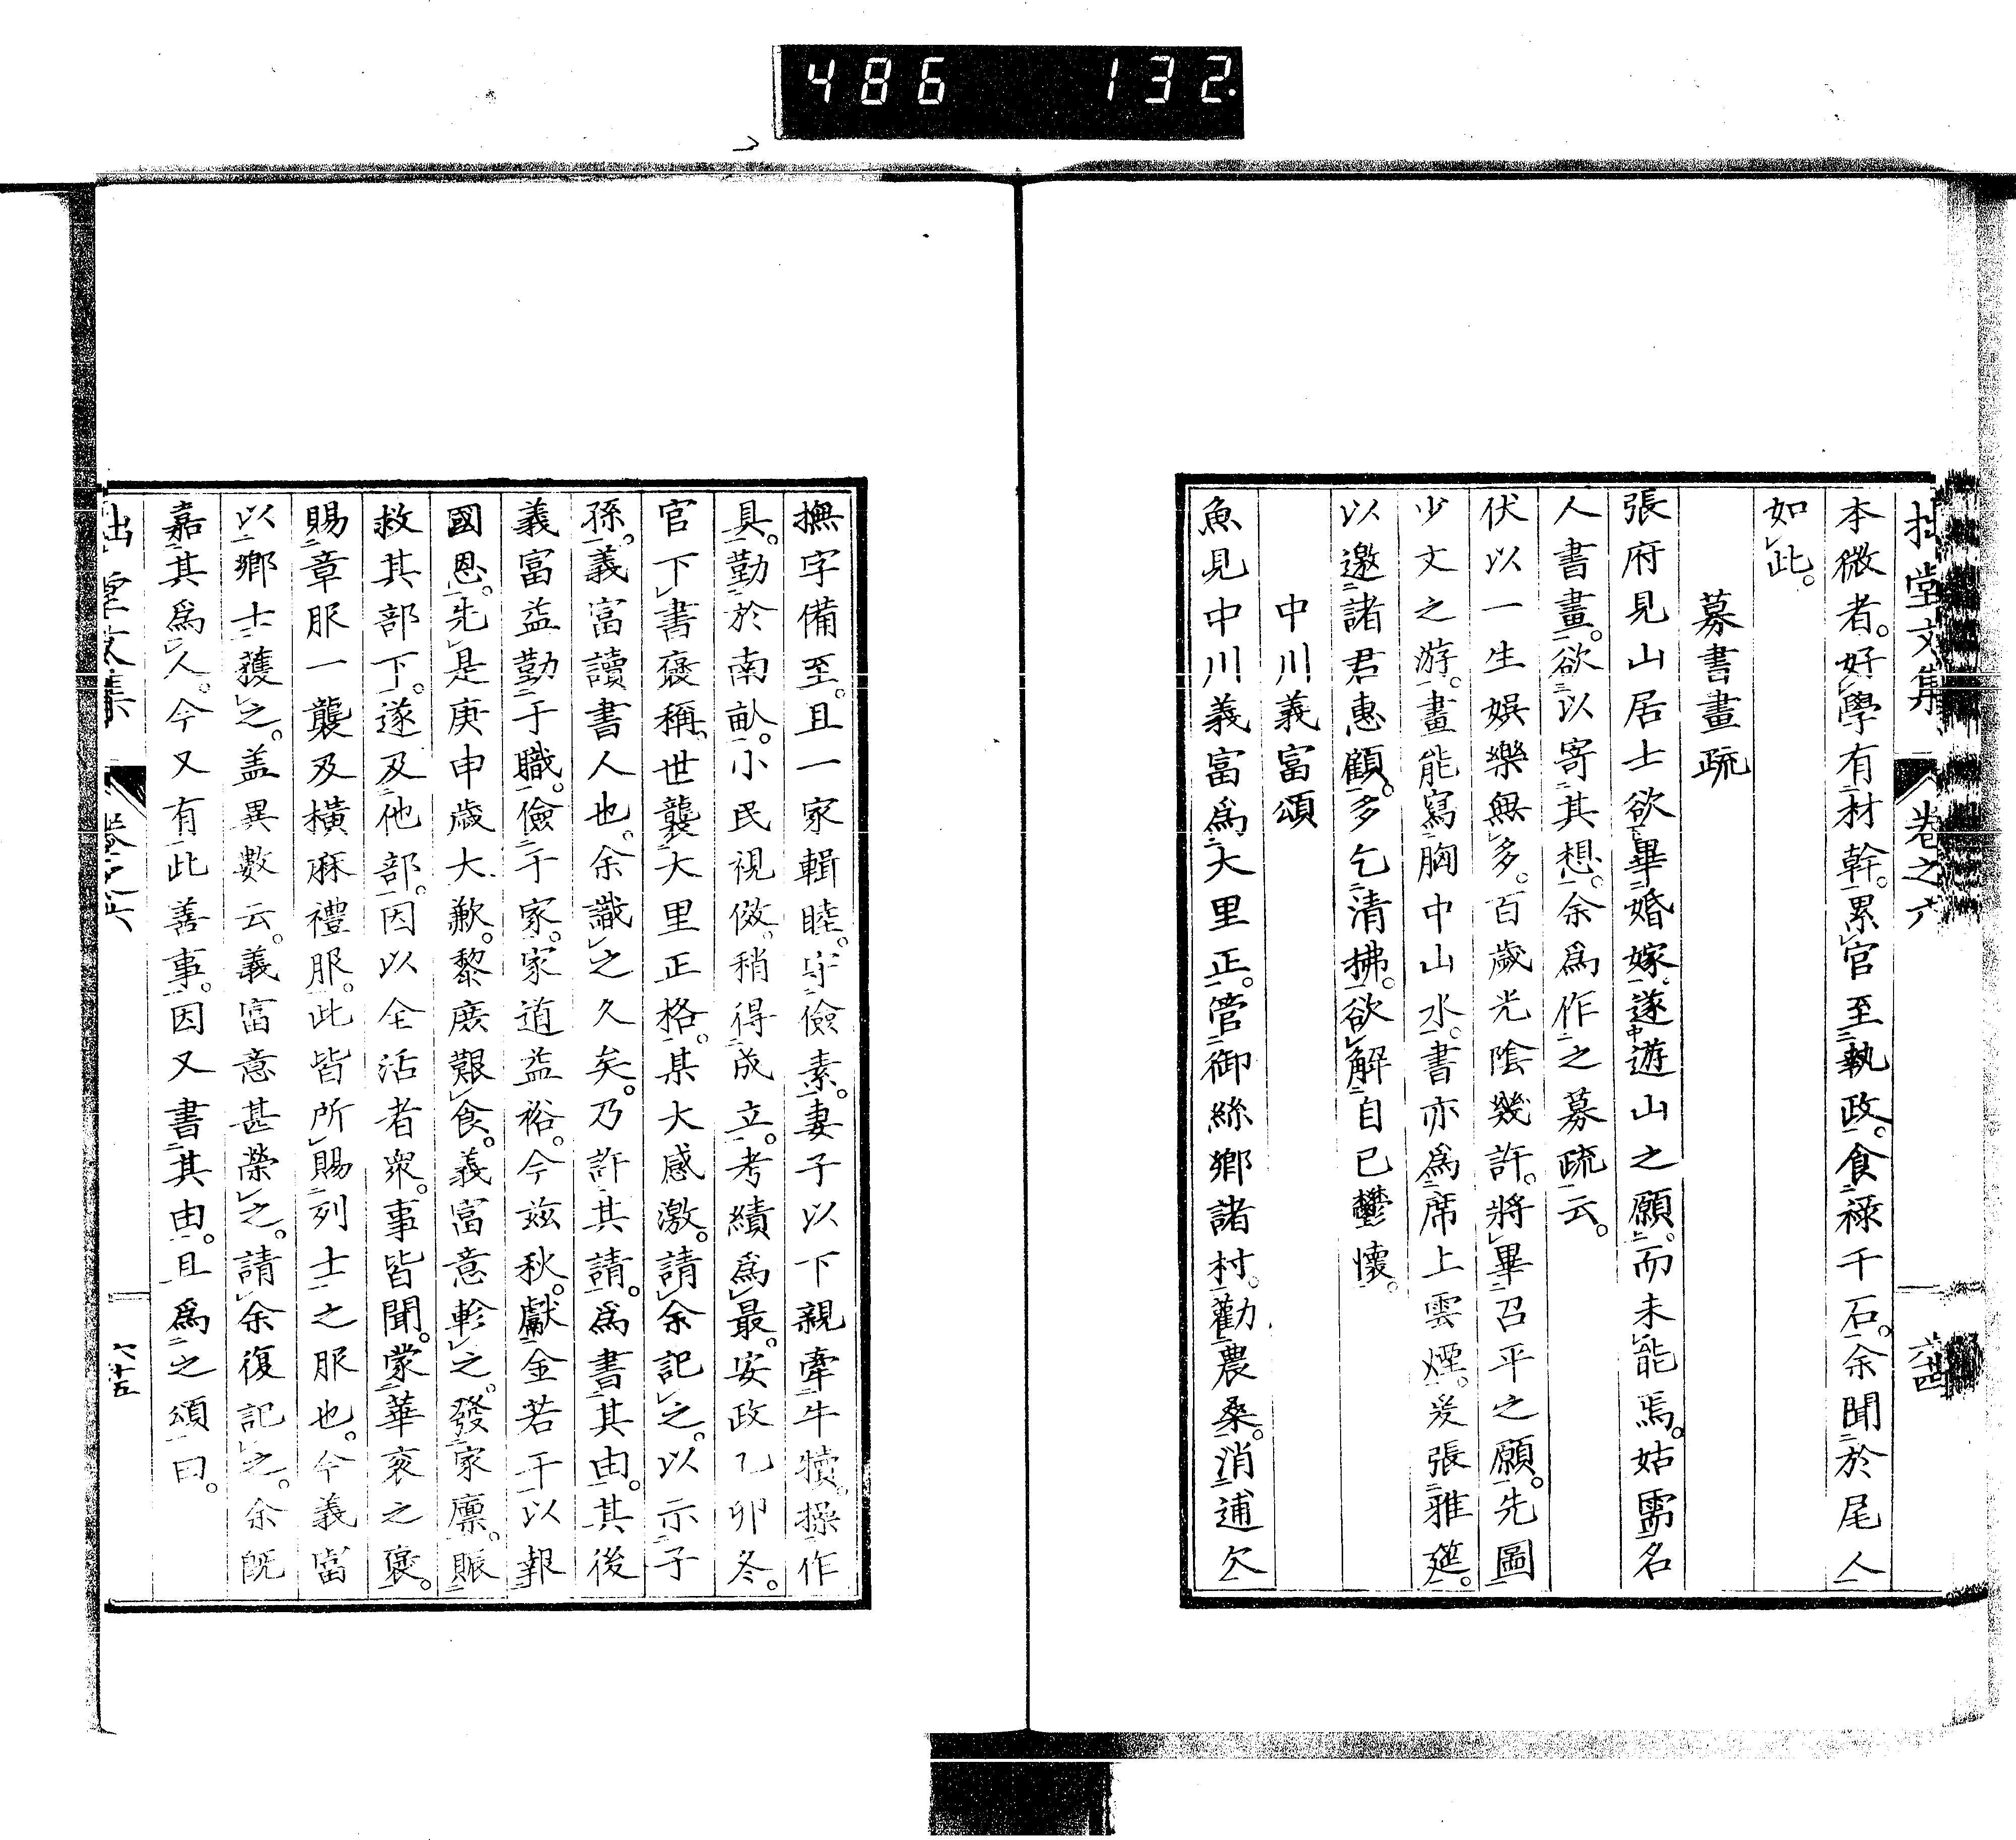 486 132
拙堂文集 卷之六 六十四
本微者。好學有材幹。累官至執政。食祿千石。余聞於尾人
如此。
募書畫疏
張府見山居士欲畢婚嫁。遂遊山之願。而未能焉。姑需名
人書畫。欲以寄其想。余爲作之募疏云。
伏以一生娯樂無多。百歲光陰幾許。將畢召平之願。先圖
少文之游。畫能寫胸中山水。書亦爲席上雲煙。爰張雅筵。
以邀諸君惠顧。多乞清拂。欲解自己鬱懷。
中川義富頌
魚見中川義富爲大里正。管御絲鄉諸村。勸農桑。消逋欠
撫字備至。且一家輯睦。守儉素。妻子以下親牽牛犢。操作
具。勤於南畝。小民視傚。稍得成立。考績爲最。安政乙卯冬。
官下書褒稱。世襲大里正格。某大感激。請余記之。以示子
孫。義富讀書人也。余識之久矣。乃許其請。爲書其由。其後
義富益勤于職。儉于家。家道益裕。今玆秋。獻金若干以報
國恩。先是庚申歲大歉。黎庶艱食。義富意軫之。發家廩。賑
救其部下。遂及他部。因以全活者衆。事皆聞。蒙華衮之褒。
賜章服一襲及橫麻禮服。此皆所賜列士之服也。今義富
以鄉士獲之。盖異數云。義富意甚榮之。請余復記之。余旣
嘉其爲人。今又有此善事。因又書其由。且爲之頌曰。
拙堂文集 卷之六 六十五